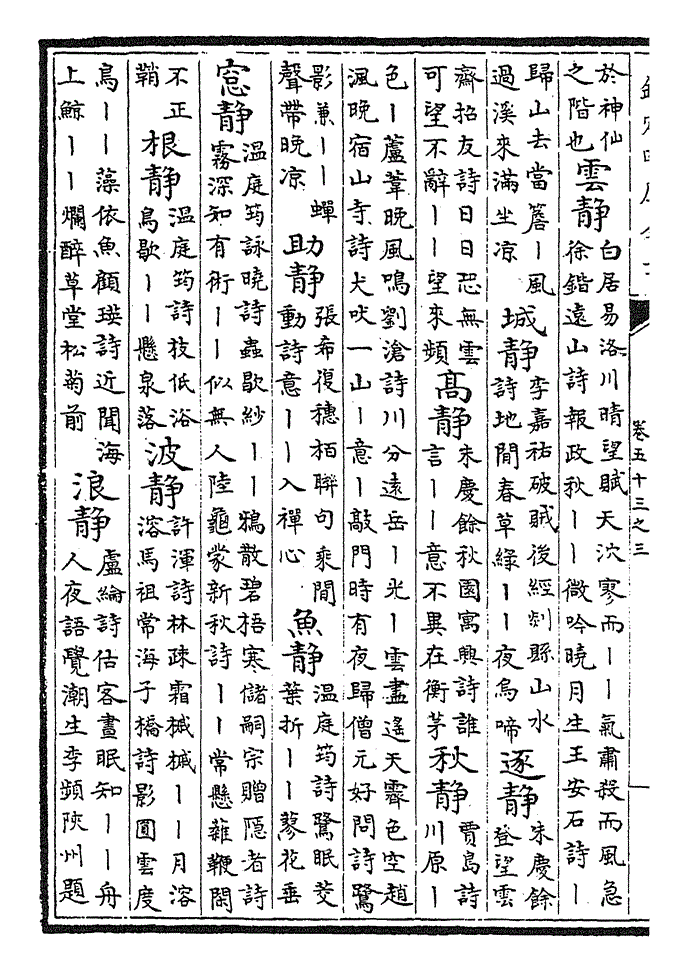 卷五十三之三
於神仙
之階也
雲靜
白居易洛川晴望賦天泬寥而丨丨氣肅殺而風急
徐鍇遠山詩報政秋丨丨微吟曉月生王安石詩丨
歸山去當簷丨風
過溪來滿坐凉
城靜
李嘉祐破賊後經剡縣山水
詩地閒春草綠丨丨夜烏啼
逐靜
朱慶餘
登望雲
齋招友詩日日恐無雲
可望不辭丨丨望來頻
高靜
朱慶餘秋園寓興詩誰
言丨丨意不異在衡茅
秋靜
賈島詩
川原丨
色丨蘆葦晚風鳴劉滄詩川分遠岳丨光丨雲盡遙天霽色空趙
渢晚宿山寺詩犬吠一山丨意丨敲門時有夜歸僧元好問詩鷺
影兼丨丨蟬
聲帶晚凉
助靜
張希復穗柏聯句乘閒
動詩意丨丨入禪心
魚靜
溫庭筠詩鷺眠茭
葉折丨丨蓼花垂
窓靜
溫庭筠詠曉詩蟲歇紗丨丨鴉散碧梧寒儲嗣宗贈隱者詩
霧深知有術丨丨似無人陸龜蒙新秋詩丨丨常懸薤鞭閑
不正
鞘
根靜
溫庭筠詩枝低浴
鳥歇丨丨懸泉落
波靜
許渾詩林疎霜槭槭丨丨月溶
溶馬祖常海子橋詩影圓雲度
鳥丨丨藻依魚顧瑛詩近聞海
上鯨丨丨爛醉草堂松菊前
浪靜
盧綸詩估客晝眠知丨丨舟
人夜語覺潮生李頻陝州題